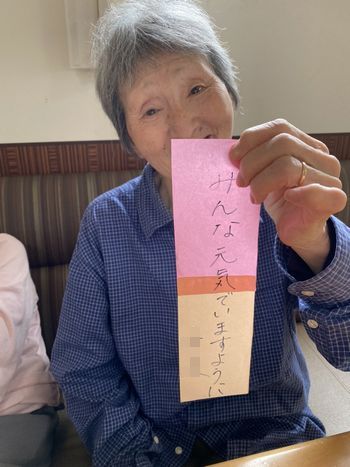 みんな元気でいますように